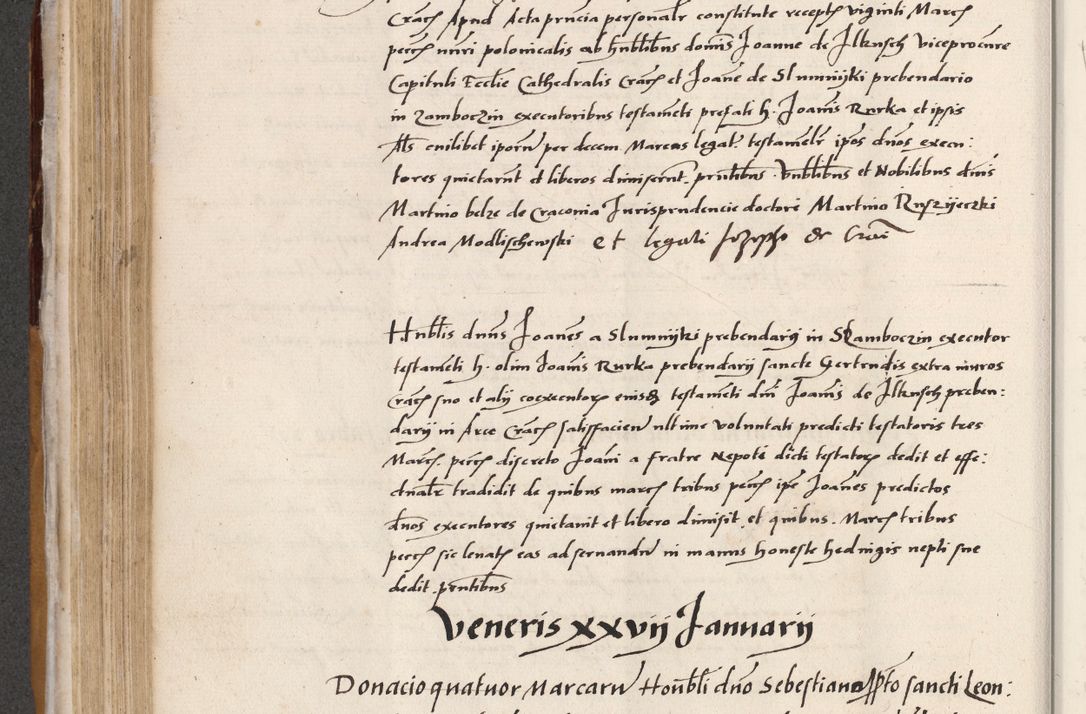 Cracoviensis Apud Acta prncia personalr constitute receptis viginti Marcis
pecc numeri polonicalis ab honblibus dominis Joanne de Ilkusch viceprocure
Capituli Ecclie Cathedralis Crac et Joane de Slumnijki prebendario
in Zamboczin executoribus testamenti prefati h. Joanis Rurka et ipsis
Als cuilibet iporu per decem Marcas legat testamentr ipos dnos execu:
tores quietarunt et liberos dimiserunt. prntibus. Vnblibus et Nobilibus dnis
Martino belze de Cracouia Jurisprudencie doctore Martino Ruszijeczki
Andrea Modlischewski et legali Jozepho de Crac
Hnblis dnus Joanes a Slumnijki prebendarij in SKamboczin executor
testamenti h. olim Joanis Rurka prebendarij sancte Gertrudis extra muros
Crac suo et alij coexecutor eiusq testamenti dni Joanis de Ilkusch preben:
darij in Arce Crac satisfacien ultime voluntati predicti testatoris tres
Marc. pecc discreto Joani a fratre Nepote dicti testator dedit et effe:
ctualr tradidit de quibus marc tribus pecc ipe Joanes predictos
dnos executores quietauit et libero dimisit. et quibus. Marc tribus
pecc sic leuat eas ad seruandu in manus honeste hedwigis nepti sue
dedit. prntibus
Veneris xxvij Januarij
Donacio quatuor Marcaru Honbli dno Sebestiano Ppto sancti Leon: